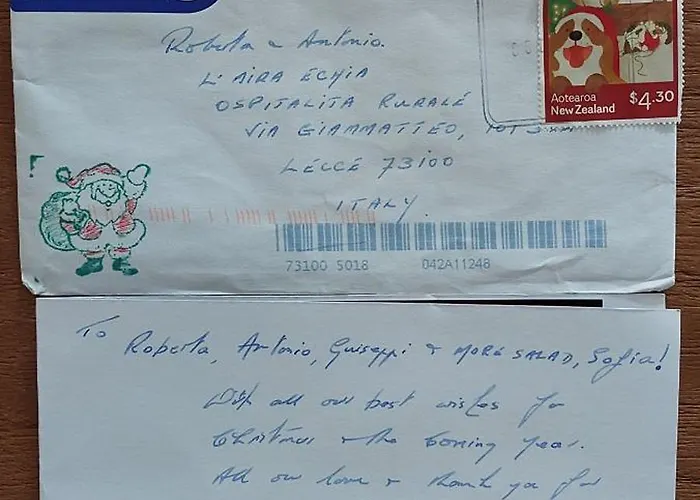 Roberta & Antonio.
L'AIRA ECHIA
OSPITALITA RURALE
VIA GIAMMATTEO,
LECCE 73100
ITALY.
Aotearoa
New Zealand $4.30
73100 5018 042A11248
To
Roberta, Antonio, Guiseppi & MORE SALAD, Sofia!
With all our best wishes for
Christmas & the coming year.
All our love & thank you for